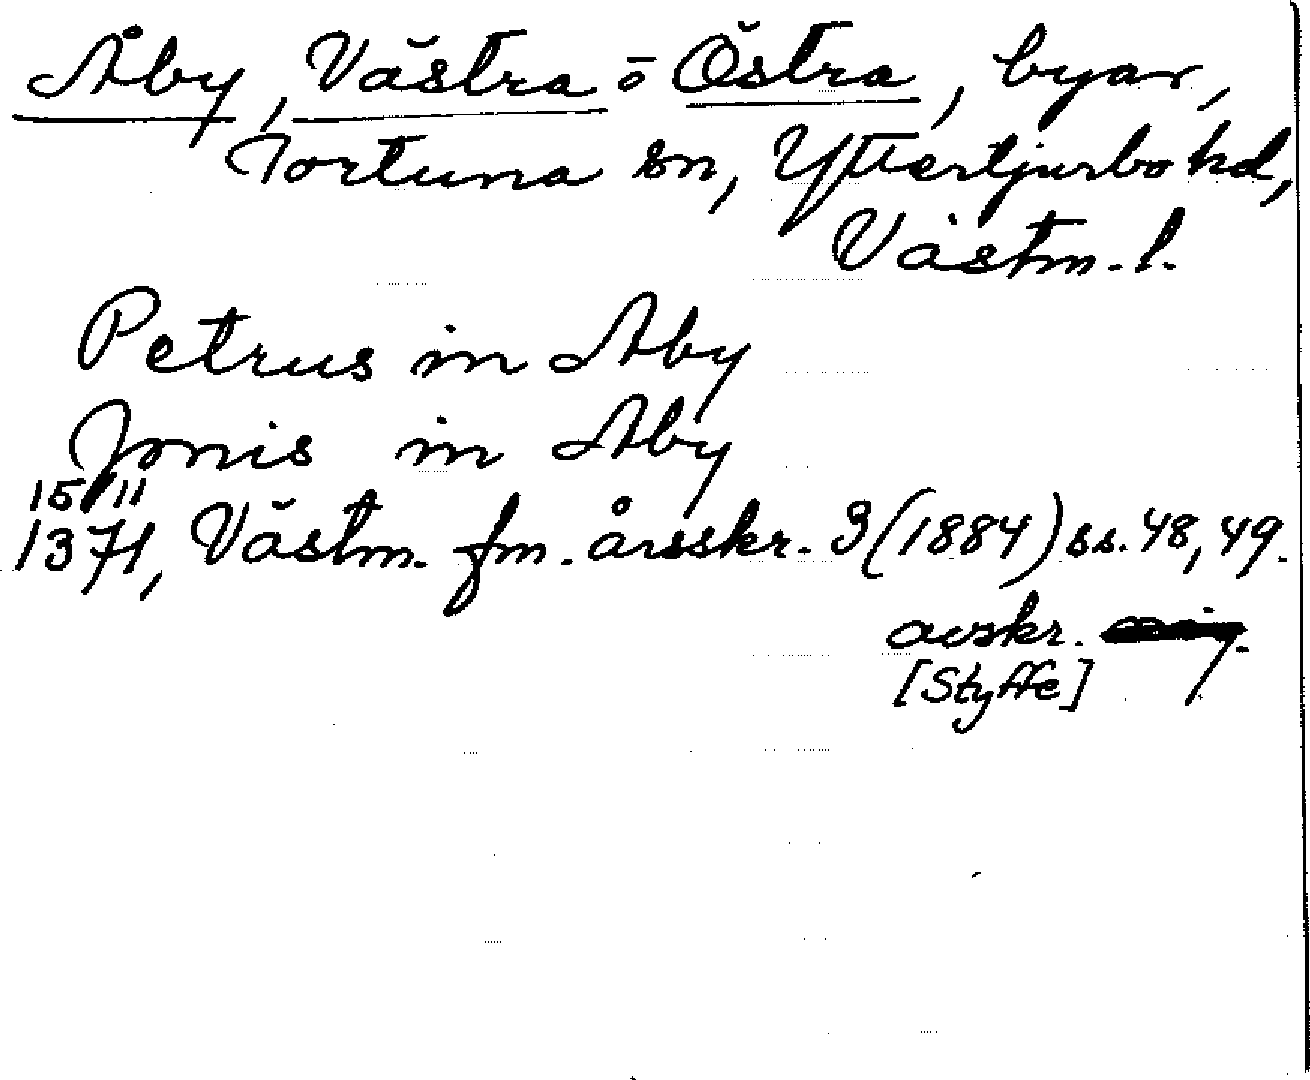 Åby, Västra o Östra, byar,
Tortuna sn, Yttertjurbo hd,
Västm. l.
Petrus in Aby
Jonis in Aby
15/11
1371, Västm. fm. årsskr. 3 (1884) ss. 48, 49.
avskr.
[Styffe]